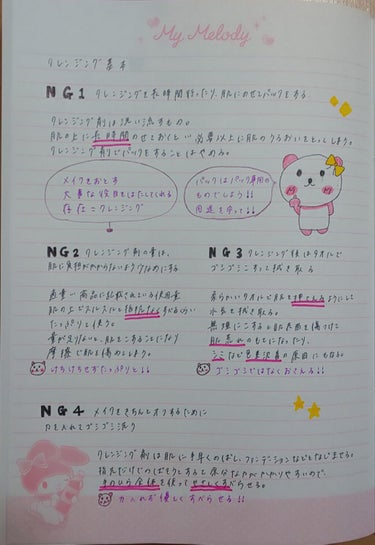 My Melody
クレンジング基本
NG1 クレンジングを長時間行ったり、肌にのせてパックをする
クレンジング剤は洗い流すもの。
肌の上に長時間のせておくと、必要以上に肌のうるおいをとってしまう。
クレンジング剤でパックをすることはやめる。
メイクをおとす
大事な役目をはたしてくれる
存在=クレンジング
パックはパック専用の
ものでしよう!!
用途を守って!!
NG2 クレンジング剤の量は、
肌に負担がかからないよう少なめにする
適量…商品に記載されている使用量
肌の上でスルスルと指がすべるくらい
たっぷりと使う。
量が足りないと、肌をこすることになり
摩擦で肌を傷めてしまう。
けちけちせずたっぷりと!!
NG3 クレンジング後はタオルで
ゴシゴシこすって拭き取る
柔らかいタオルで肌を押さえるようにして
水気を拭き取る。
無理にこすると肌表面を傷つけて
肌荒れのもとになったり、
シミなど色素沈着の原因にもなる。
ゴシゴシではなくおさえる!!
NG4 メイクをきちんとオフするために
力を入れてゴシゴシ洗う
クレンジング剤は肌に手早くのばし、ファンデーションなどとなじませる。
指先だけでのばそうとすると余分な力がかかりやすいので、
手のひら全体を使ってやさしくすべらせる。
力入れず優しくすべらせる!!